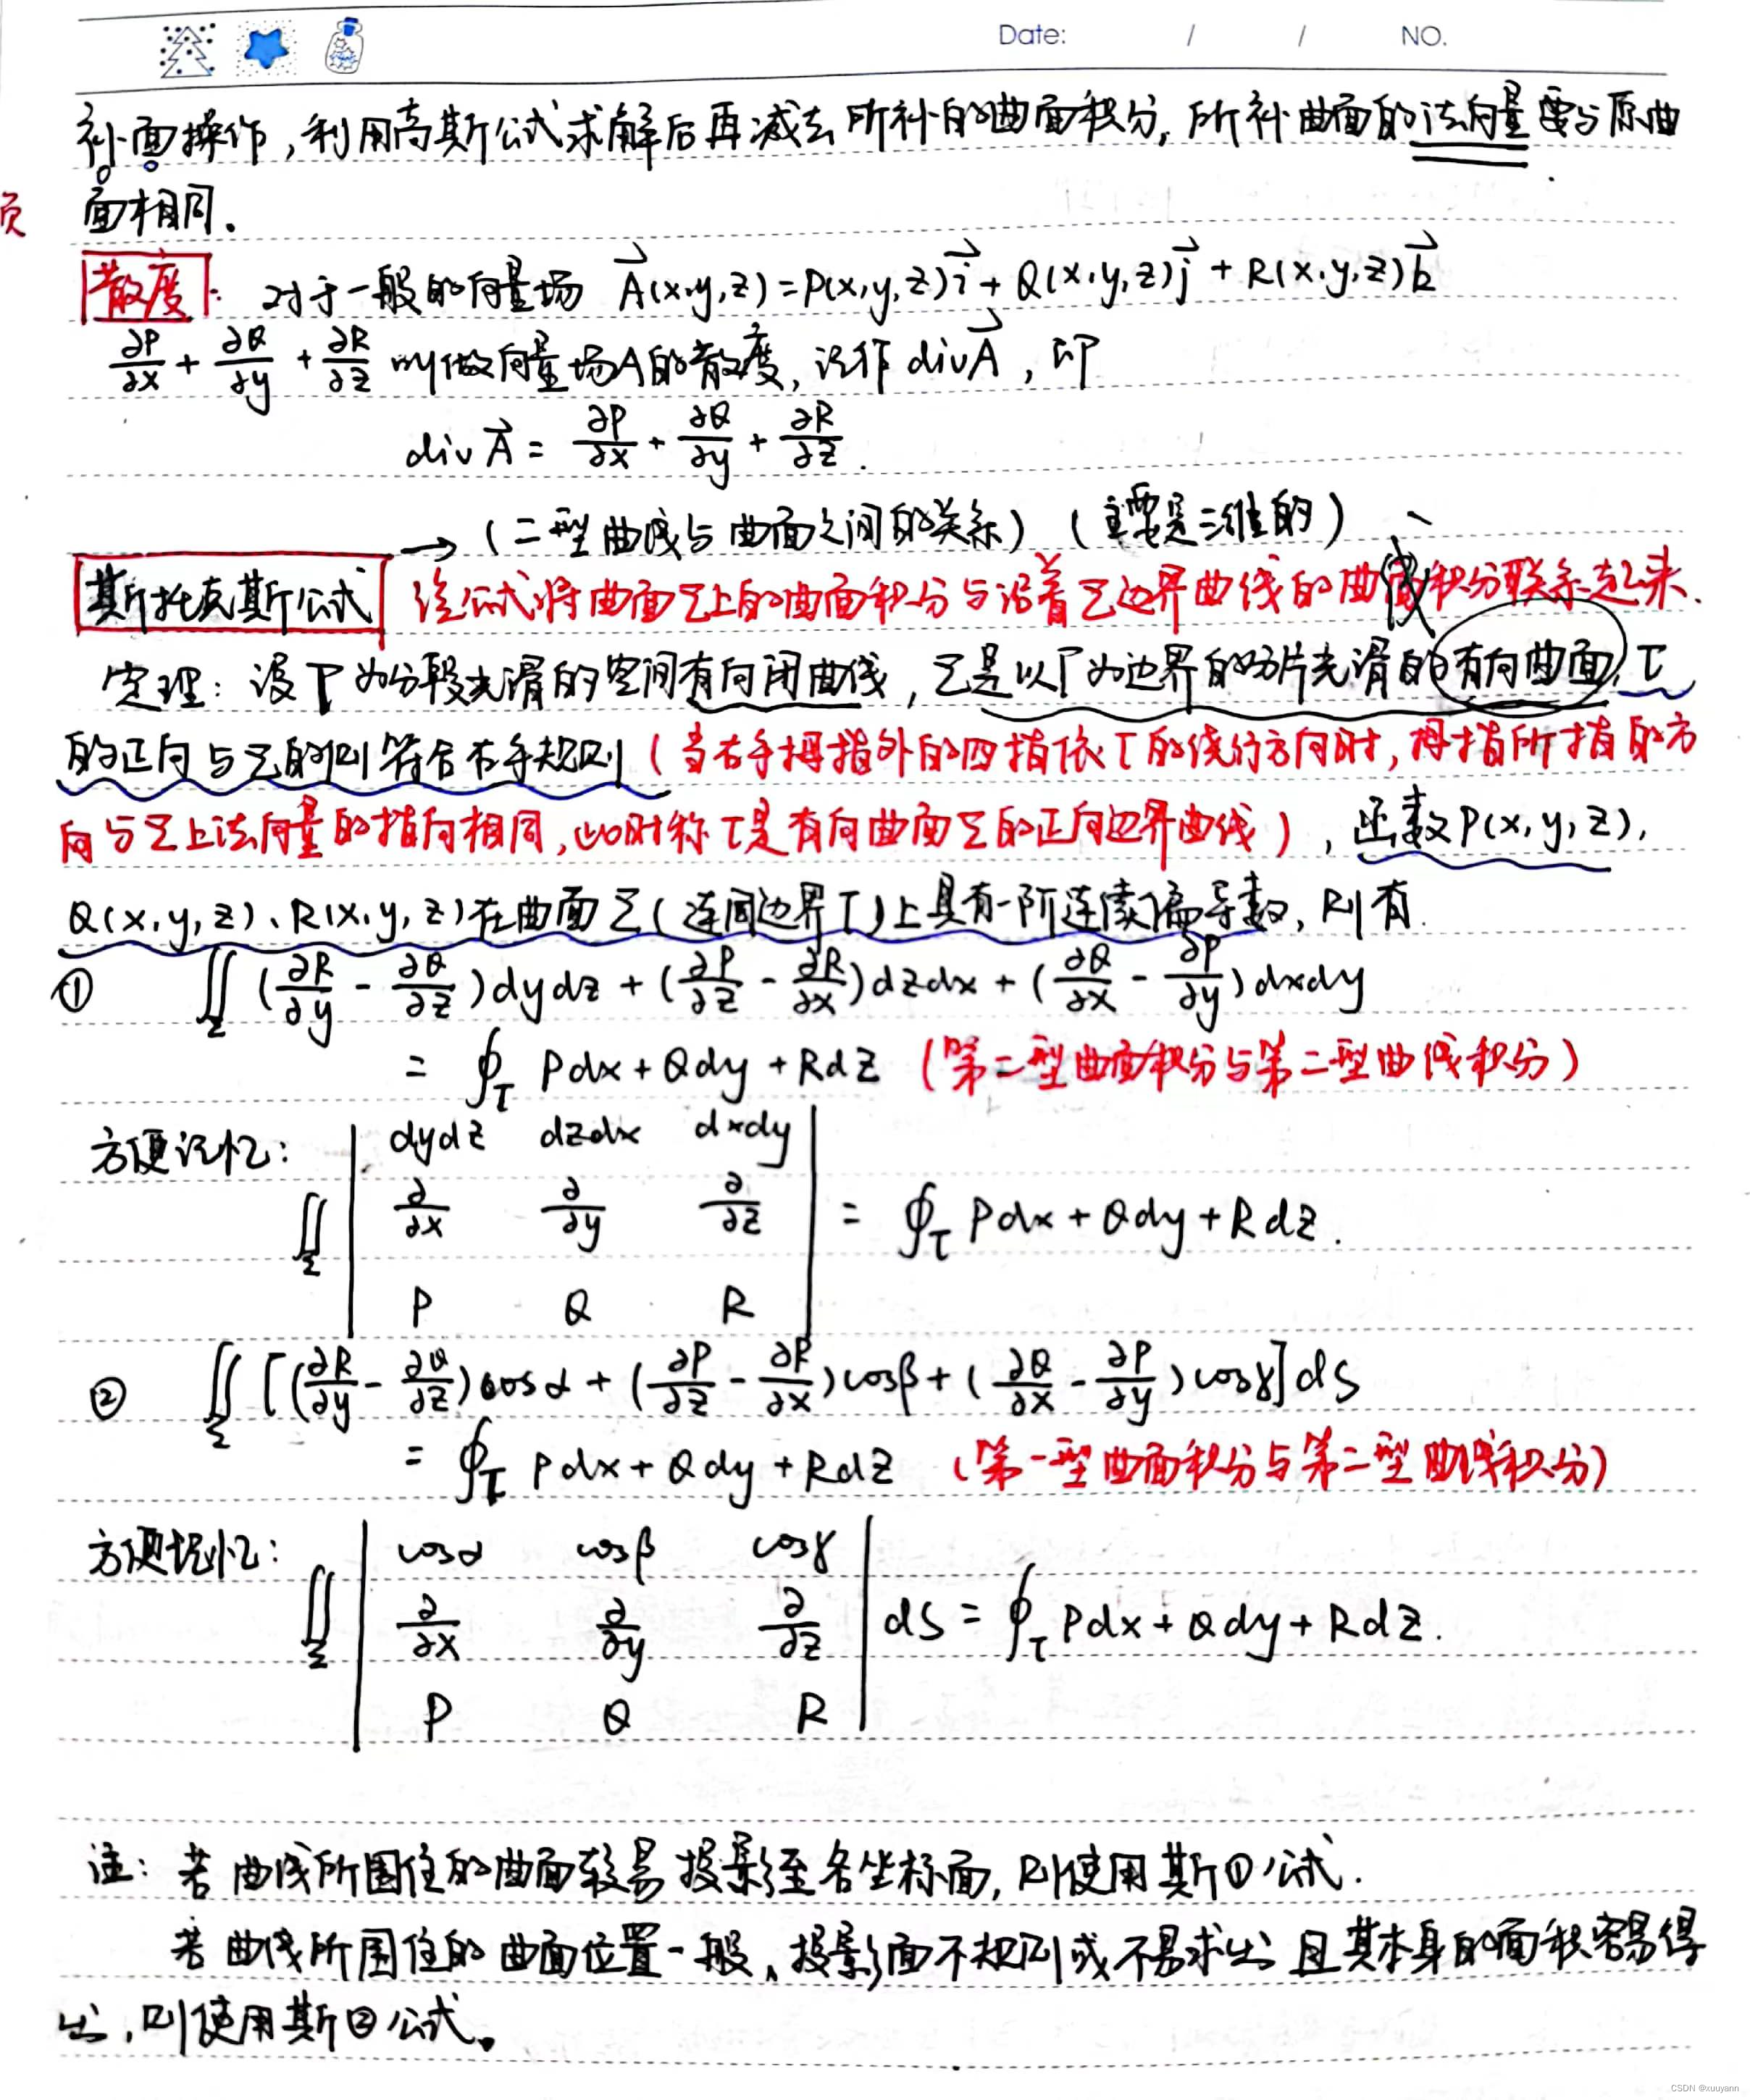 Date: / / NO.
补面操作，利用高斯公式求解后再减去所补的曲面积分，所补曲面的法向量要与原曲
面相同.
页
散度: 对于一般的向量场 A⃗(x,y,z)=P(x,y,z)i⃗+Q(x,y,z)j⃗+R(x,y,z)k⃗
∂P/∂x + ∂Q/∂y + ∂R/∂z 叫做向量场A的散度, 记作 divA⃗, 即
divA⃗ = ∂P/∂x + ∂Q/∂y + ∂R/∂z.
→ (二型曲线与曲面之间的关系) (主要是三维的)
斯托克斯公式 该公式将曲面Σ上的曲面积分与沿着Σ边界曲线的曲线积分联系起来.
定理: 设Γ为分段光滑的空间有向闭曲线, Σ是以Γ为边界的分片光滑的有向曲面, Γ
的正向与Σ的侧符合右手规则 (当右手拇指外的四指依Γ的绕行方向时, 拇指所指的方
向与Σ上法向量的指向相同, 此时称Γ是有向曲面Σ的正向边界曲线), 函数P(x,y,z),
Q(x,y,z)、R(x,y,z)在曲面Σ(连同边界Γ)上具有一阶连续偏导数, 则有.
① ∬_Σ (∂R/∂y - ∂Q/∂z)dydz + (∂P/∂z - ∂R/∂x)dzdx + (∂Q/∂x - ∂P/∂y)dxdy
= ∮_Γ Pdx+Qdy+Rdz (第二型曲面积分与第二型曲线积分)
方便记忆: dydz dzdx dxdy
∬_Σ | ∂/∂x ∂/∂y ∂/∂z | = ∮_Γ Pdx+Qdy+Rdz.
P Q R
② ∬_Σ [(∂R/∂y - ∂Q/∂z)cosα + (∂P/∂z - ∂R/∂x)cosβ + (∂Q/∂x - ∂P/∂y)cosγ]dS
= ∮_Γ Pdx+Qdy+Rdz (第一型曲面积分与第二型曲线积分)
方便记忆: cosα cosβ cosγ
∬_Σ | ∂/∂x ∂/∂y ∂/∂z | dS = ∮_Γ Pdx+Qdy+Rdz.
P Q R
注: 若曲线所围住的曲面较易投影至各坐标面, 则使用斯①公式.
若曲线所围住的曲面位置一般、投影面不规则或不易求出且其本身的面积容易得
出, 则使用斯②公式。
CSDN @xuuyann